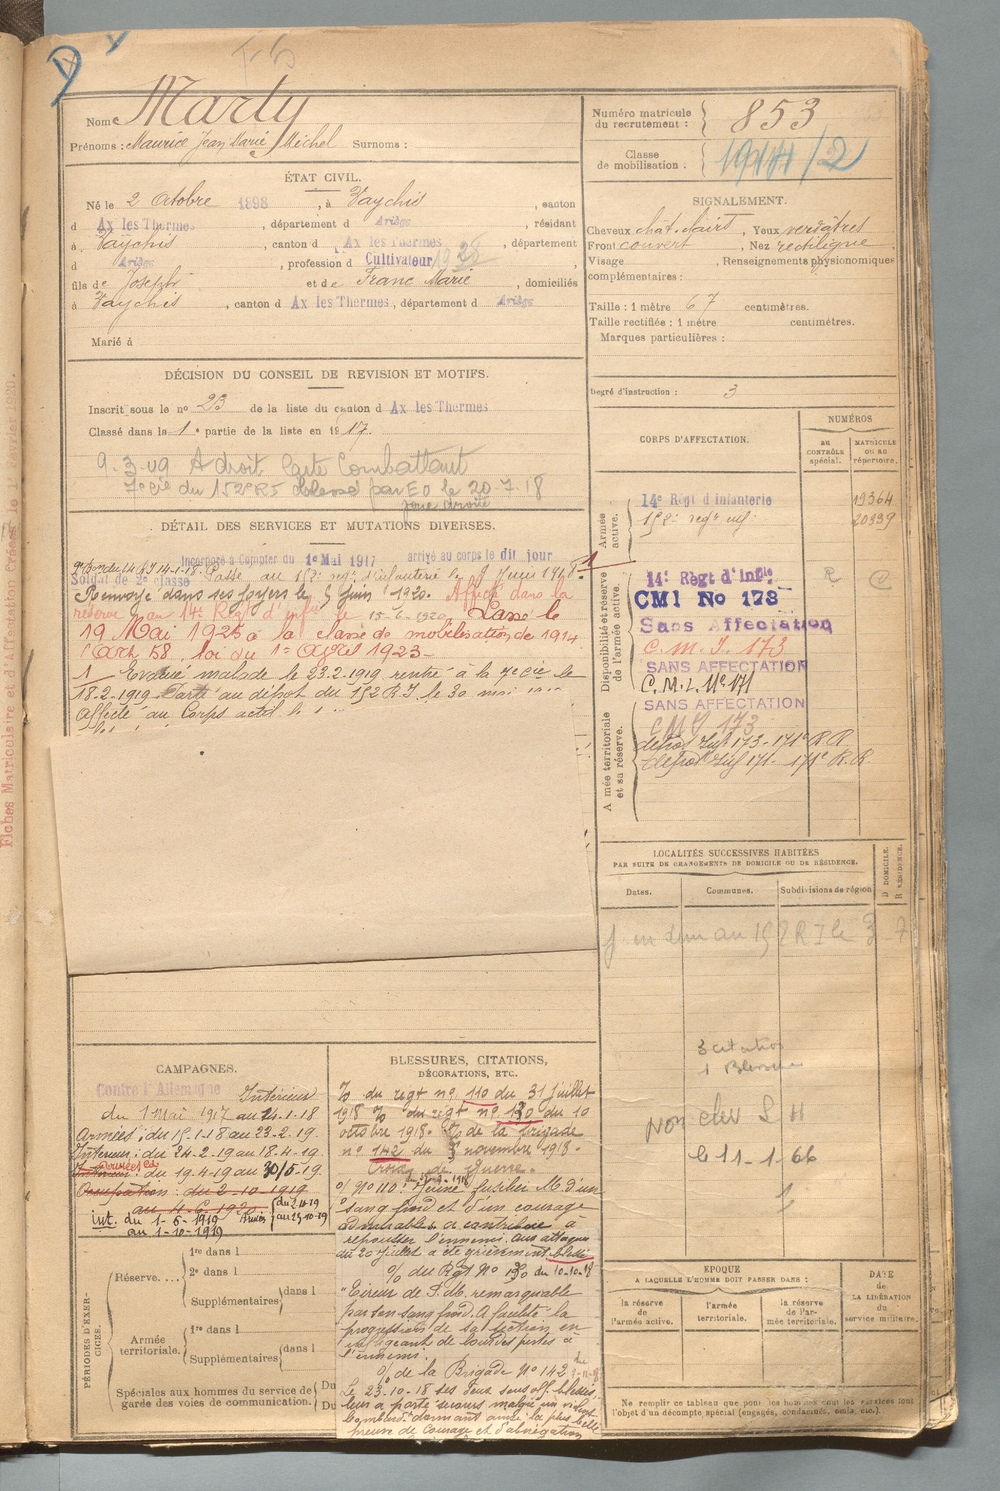 Marty
Nom
Prénoms : Maurice Jean Marie Michel Surnoms :
Numéro matricule du recrutement : 853
Classe de mobilisation : 1914/2
ÉTAT CIVIL.
Né le 2 Octobre 1898, à Vaychis, canton
d Ax les Thermes, département d Ariège, résidant
à Vaychis, canton d Ax les Thermes, département
d Ariège, profession d Cultivateur
fils de Joseph et de Franc Marie, domiciliés
à Vaychis, canton d Ax les Thermes, département d Ariège
Marié à
SIGNALEMENT.
Cheveux chât. clairs, Yeux verdâtres
Front couvert, Nez rectiligne
Visage , Renseignements physionomiques
complémentaires :
Taille : 1 mètre 67 centimètres.
Taille rectifiée : 1 mètre centimètres.
Marques particulières :
Degré d'instruction : 3
DÉCISION DU CONSEIL DE REVISION ET MOTIFS.
Inscrit sous le no 23 de la liste du canton d Ax les Thermes
Classé dans la 1e partie de la liste en 1917.
A droit Carte Combattant
7e cie du 152e RI blessé par EO le 20-7-18
joue droite
DÉTAIL DES SERVICES ET MUTATIONS DIVERSES.
Incorporé à Compter du 1e Mai 1917 arrivé au corps le dit jour
Soldat de 2e classe Passé au 152e regt d'infanterie le
Renvoyé dans ses foyers le 5 juin 1920. Affecté dans la
réserve au 14e Regt d'infie le 15-6-1920 Classé le
19 Mai 1925 à la classe de mobilisation de 1914
(Art. 58 loi du 1er Avril 1923-
1/ Evacué malade le 23.2.1919 rentré à la 7e Cie le
18-2-1919 Parti au dépôt du 152 R.I. le 30 mai
Affecté au Corps
CORPS D'AFFECTATION.
NUMÉROS
AU CONTRÔLE spécial.
MATRICULE OU AU RÉPERTOIRE.
Armée active.
14e Régt d'infanterie 19364
152e regt inf. 20939
Disponibilité et réserve de l'armée active.
14e Régt d'Infie
CMI No 178
Sans Affectation
C.M.I. 173
SANS AFFECTATION
C.M.I. No 171
SANS AFFECTATION
Armée territoriale et sa réserve.
CMI 173
dépôt Inf 173 - 171e R.R.
dépôt Inf 171 - 171e R.R.
LOCALITÉS SUCCESSIVES HABITÉES
PAR SUITE DE CHANGEMENTS DE DOMICILE OU DE RÉSIDENCE.
Dates. Communes. Subdivisions de région
D DOMICILE. R RÉSIDENCE.
3 citations
1 Blessure
Non chev L H
le 11-1-66
Fiches Matriculaire et d'Affectation Créées le 1er Février 1920.
CAMPAGNES.
Contre l'Allemagne
Intérieur
du 1 Mai 1917 au 14-1-18
Armées : du 15-1-18 au 23-2-19.
Intérieur : du 24-2-19 au 18-4-19.
Armées : du 19-4-19 au 30/5-19
Occupation : du 2-10-1919
au 4-6-1920
Int. du 1-6-1919
au 1-10-1919
Armées du 2-10-19 au 23-10-19
BLESSURES, CITATIONS,
DÉCORATIONS, ETC.
% du regt no 110 du 31 juillet
1918 % du regt no 130 du 10
octobre 1918. % de la brigade
no 142 du 3 novembre 1918.
Croix de guerre.
% No 110 : Jeune fusilier M. d'un
sang froid et d'un courage
admirables a contribué à
repousser l'ennemi aux attaques
du 20 juillet a été grièvement blessé
% du Rgt No 130 du 10-10-18
"Tireur de F.M. remarquable
par son sang froid. A facilité la
progression de sa section en
infligeant de lourdes pertes à
l'ennemi.
% de la Brigade No 142
Le 23-10-18 ses deux sous off. blessés
leur a porté secours malgré un violent
bombardt donnant ainsi la plus belle
preuve de courage et d'abnégation
PÉRIODES D'EXERCICES.
Réserve....
1re dans l
2e dans l
Supplémentaires dans l
Armée territoriale.
1re dans l
Supplémentaires dans l
Spéciales aux hommes du service de garde des voies de communication.
Du
Du
ÉPOQUE
A LAQUELLE L'HOMME DOIT PASSER DANS :
la réserve de l'armée active.
l'armée territoriale.
la réserve de l'armée territoriale.
DATE de LA LIBÉRATION du service militaire.
Ne remplir ce tableau que pour les hommes dont les services font
l'objet d'un décompte spécial (engagés, condamnés, omis, etc.).